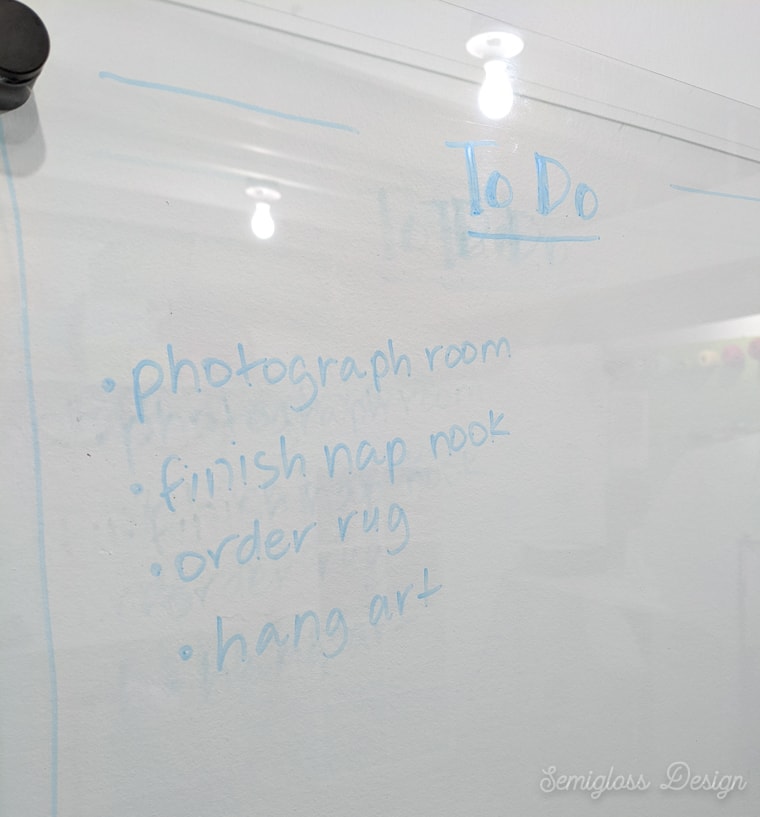 To Do
• photograph room
• finish nap nook
• order rug
• hang art
Semigloss Design